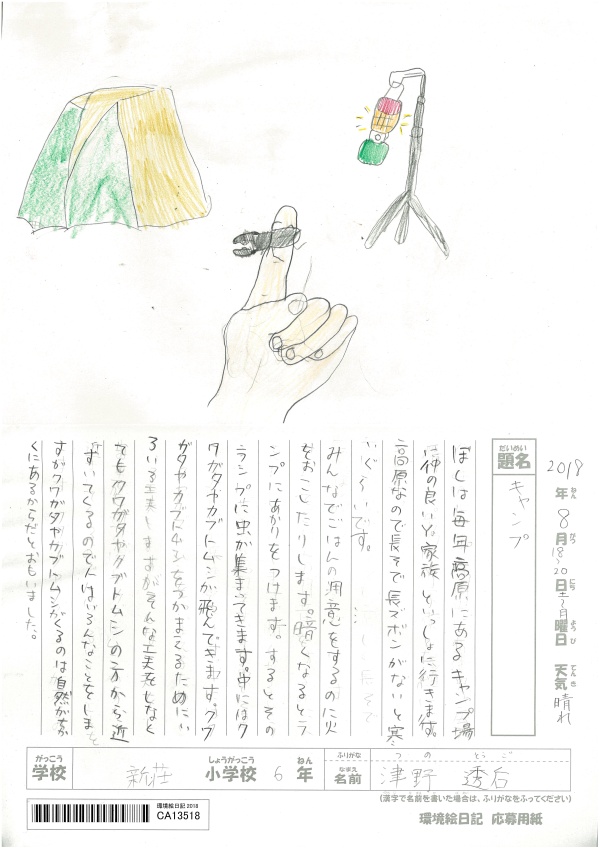 2018年8月18〜20日土〜月曜日 天気 晴れ
だいめい
題名 キャンプ
ぼくは毎年高原にあるキャンプ場
に仲の良い家族といっしょに行きます。
高原なので長そで長ズボンがないと寒
いぐらいです。
みんなでごはんの用意をするのに火
をおこしたりします。暗くなるとラ
ンプにあかりをつけます。するとその
ランプに虫が集まってきます。中にはク
ワガタやカブトムシが飛んできます。クワ
ガタやカブトムシをつかまえるためにい
ろいろ工夫しますがそんな工夫をしなく
てもクワガタやカブトムシの方から近
づいてくるので人はいろんなことをしま
すがクワガタやカブトムシがくるのは自然がちか
くにあるからだとおもいました。
がっこう しょうがっこう ねん
学校 新荘 小学校 6年
ふりがな つの とうご
なまえ
名前 津野 透吾
(漢字で名前を書いた場合は、ふりがなをふってください)
環境絵日記 2018
CA13518
環境絵日記 応募用紙